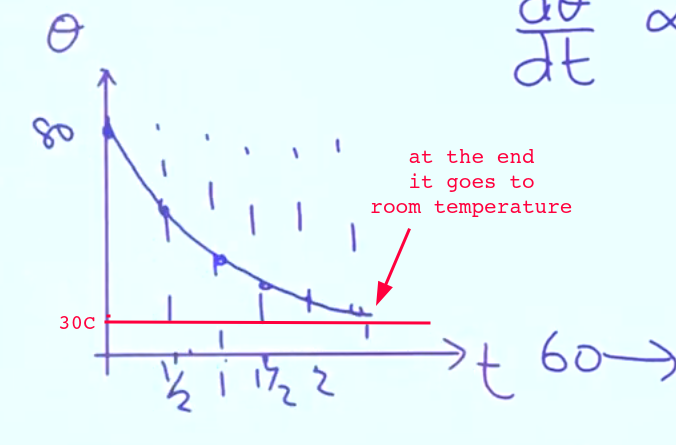 θ
dθ
dt
∝
80
at the end
it goes to
room temperature
30C
1/2 1 1 1/2 2
t
60→